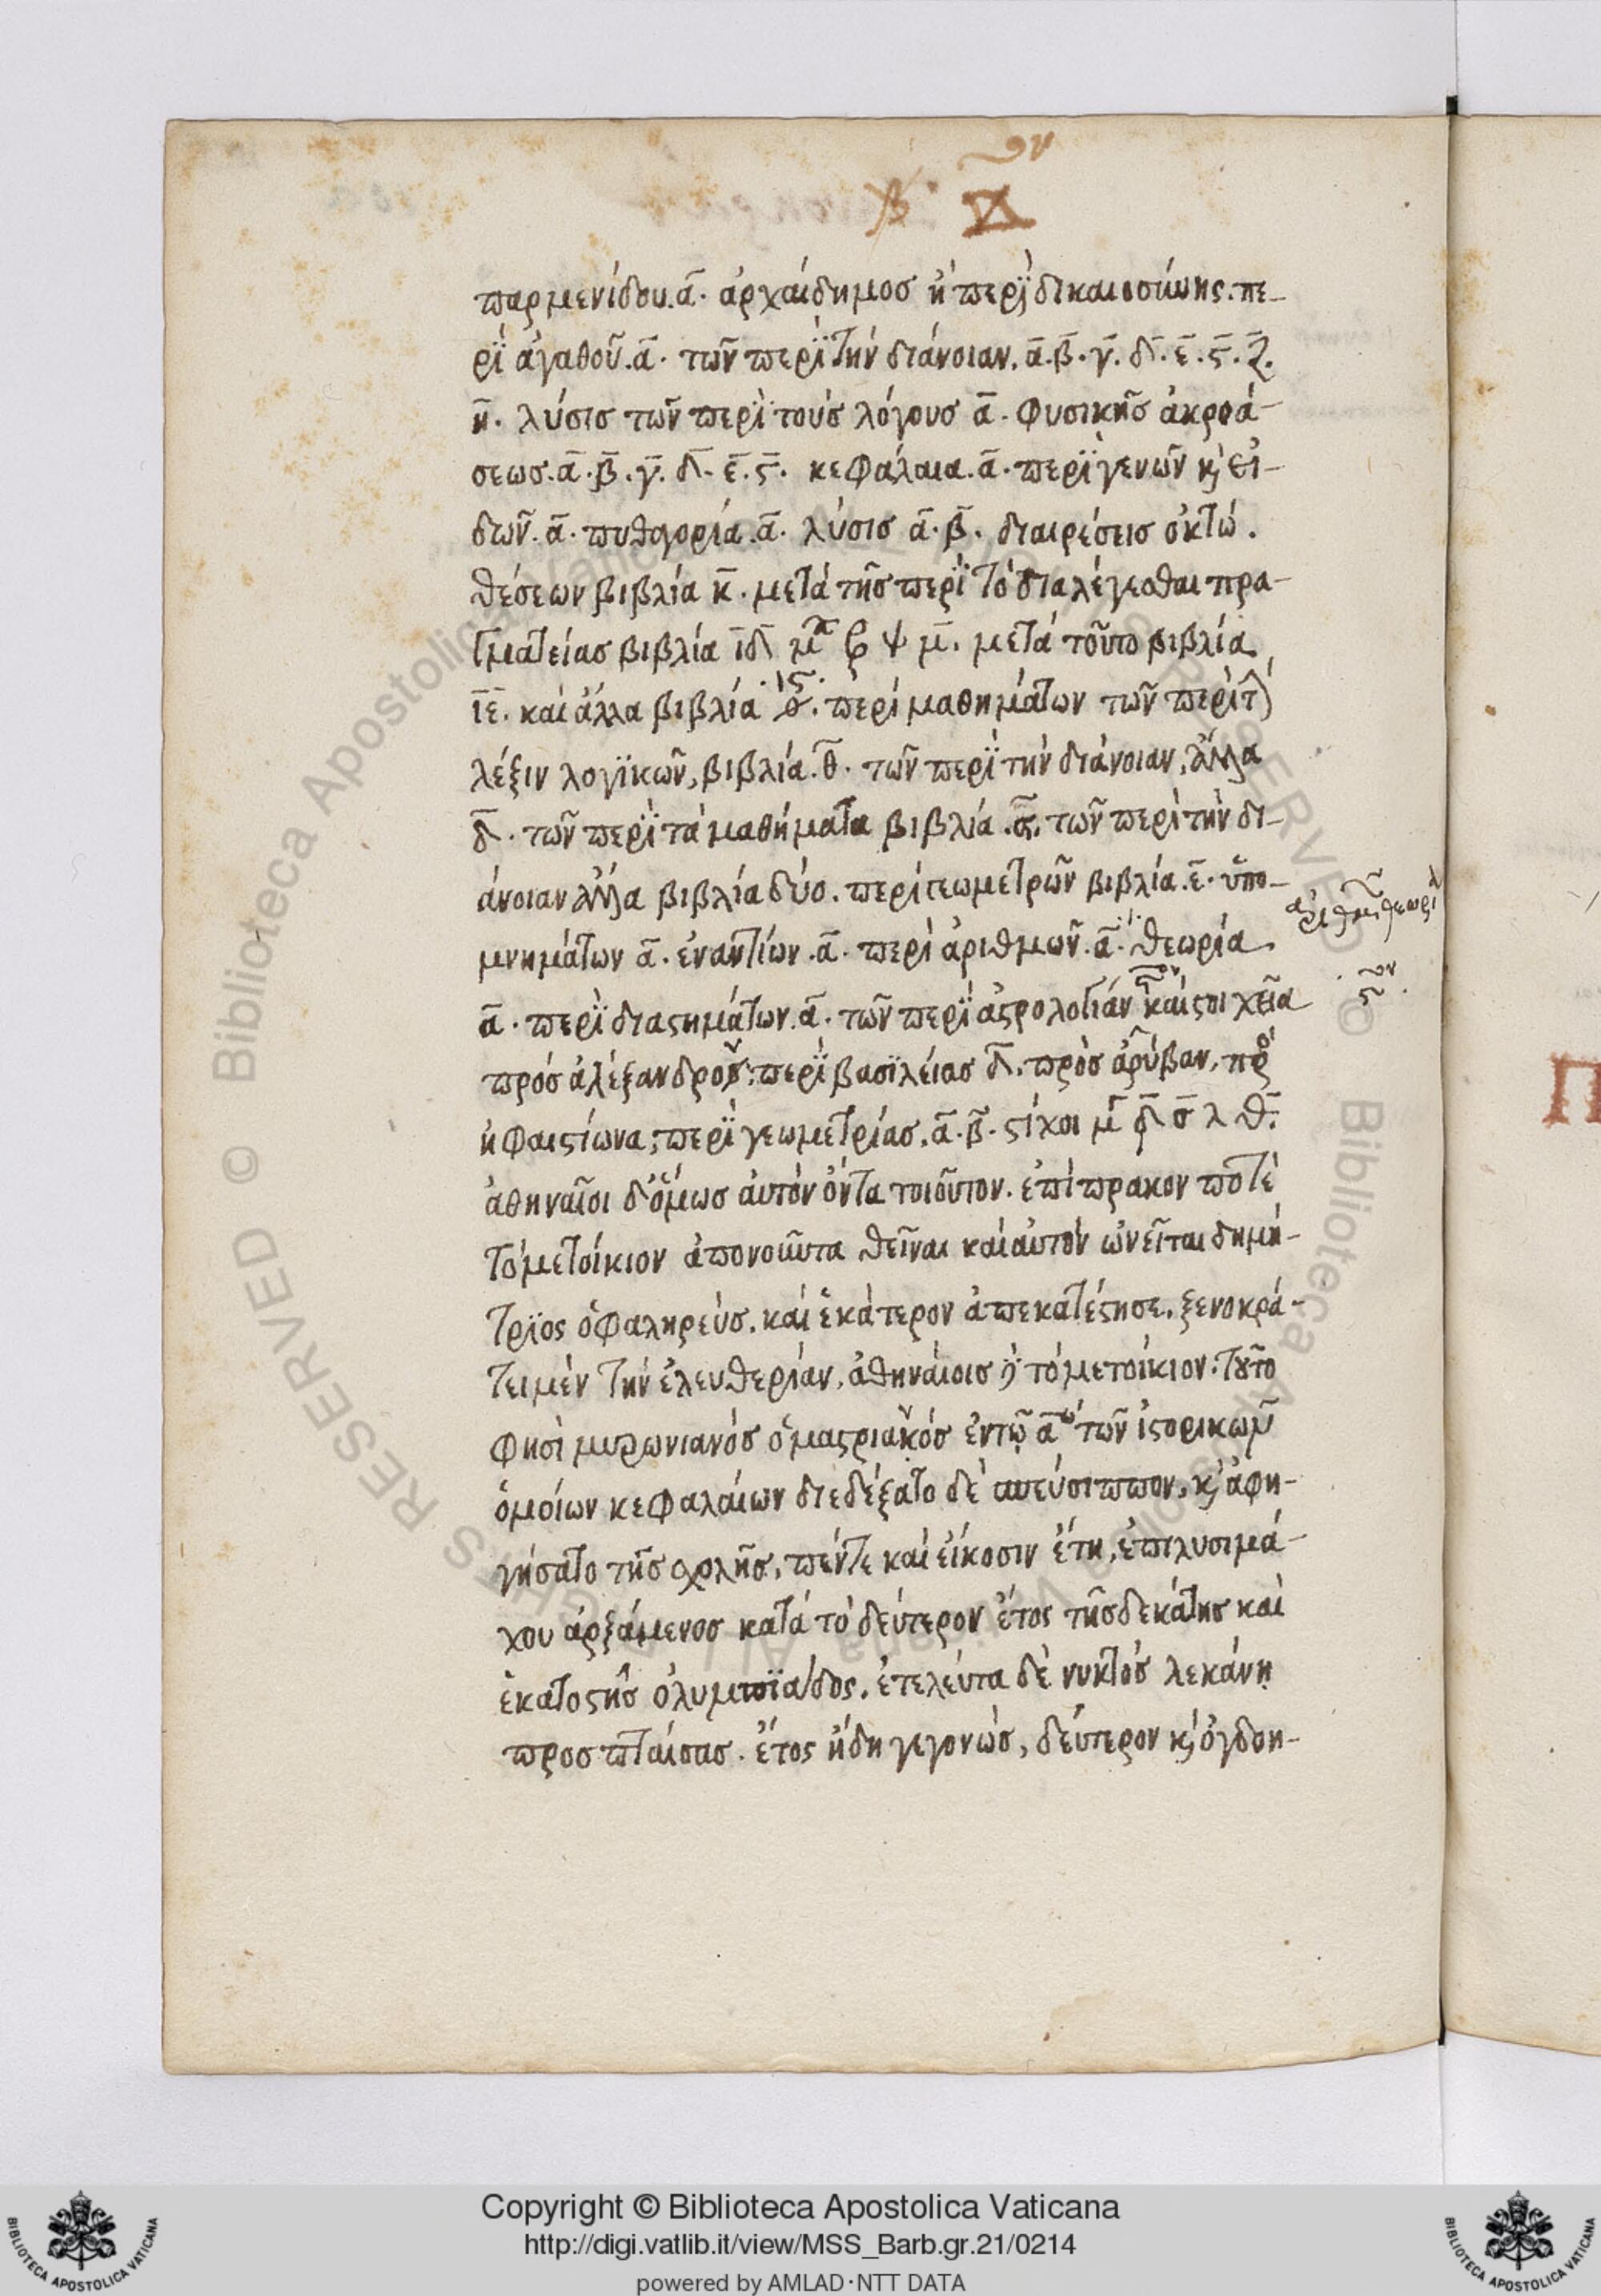 παρμενίδου. ᾱ. ἀρχαίδημοσ ἢ περὶ δικαιοσύνης. πε-
ρὶ ἀγαθοῦ. ᾱ. τῶν περὶ τὴν διάνοιαν. ᾱ. β̄. γ̄. δ̄. ε̄. ϛ̄. ζ̄.
η̄. λύσισ τῶν περὶ τοὺσ λόγουσ ᾱ. φυσικῆσ ἀκροά-
σεωσ. ᾱ. β̄. γ̄. δ̄. ε̄. ϛ̄. κεφάλαια. ᾱ. περὶ γενῶν κ̀ εἰ-
δῶν. ᾱ. πυθαγορία. ᾱ. λύσισ ᾱ. β̄. διαιρέσεισ ὀκτώ.
θέσεων βιβλία κ̄. μετὰ τῆσ περὶ τὸ διαλέγεσθαι πρα-
γματείασ βιβλία ῑδ̄ ψ μ̄. μετὰ τοῦτο βιβλία
ῑε̄. καὶ ἄλλα βιβλία ιϛ. περὶ μαθημάτων τῶν περὶ τ̀
λέξιν λογϊκῶν, βιβλία. θ̄. τῶν περὶ τὴν διάνοιαν, ἄλλα
δ̄. τῶν περὶ τὰ μαθήματα βιβλία. ϛ̄. τῶν περὶ τὴν δι-
άνοιαν ἄλλα βιβλία δύο. περὶ γεωμετρῶν βιβλία. ε̄. ὑπο-
μνημάτων ᾱ. ἐναντίων. ᾱ. περὶ ἀριθμῶν. ᾱ. θεωρία.
ᾱ. περὶ διαστημάτων. ᾱ. τῶν περὶ ἀστρολογίαν καὶ στοιχεῖα
πρόσ ἀλέξανδρον: περὶ βασϊλείασ δ̄. πρὸσ ἀρύβαν, πρ
ἡφαιστίωνα; περὶ γεωμετρίασ. ᾱ. β̄. στίχοι λ θ̄:
ἀθηναῖοι δ' ὅμωσ ἀυτὸν ὄντα τοιοῦτον. ἐπίπρακον ποτὲ
τὸ μετοίκιον ἀπονοῦντα θεῖναι καὶ αὐτὸν ὠνεῖται δημή-
τρϊος ὁ φαληρεύσ. καὶ ἑκάτερον ἀπεκατέστησε. ξενοκρά-
τει μὲν τὴν ἐλευθερίαν, ἀθηναίοισ τὸ μετοίκιον. τοῦτο
φησὶ μυρωνιανόσ ὁ μαστριακόσ ἐν τῷ ᾱω τῶν ἱστορικῶν
ὁμοίων κεφαλαίων διεδέξατο δὲ σπεύσιππον, κ̀ ἀφη-
γήσατο τῆσ σχολῆσ, πέντε καὶ εἴκοσιν ἔτη, ἐπὶ λυσιμά-
χου ἀρξάμενοσ κατὰ τὸ δεύτερον ἔτος τῆσ δεκάτησ καὶ
ἑκατοστῆσ ὀλυμπϊάδος. ἐτελεύτα δὲ νυκτὸσ λεκάνῃ
προσπταίσασ. ἔτος ἤδη γεγονώσ, δεύτερον κ̀ ὀγδοη-